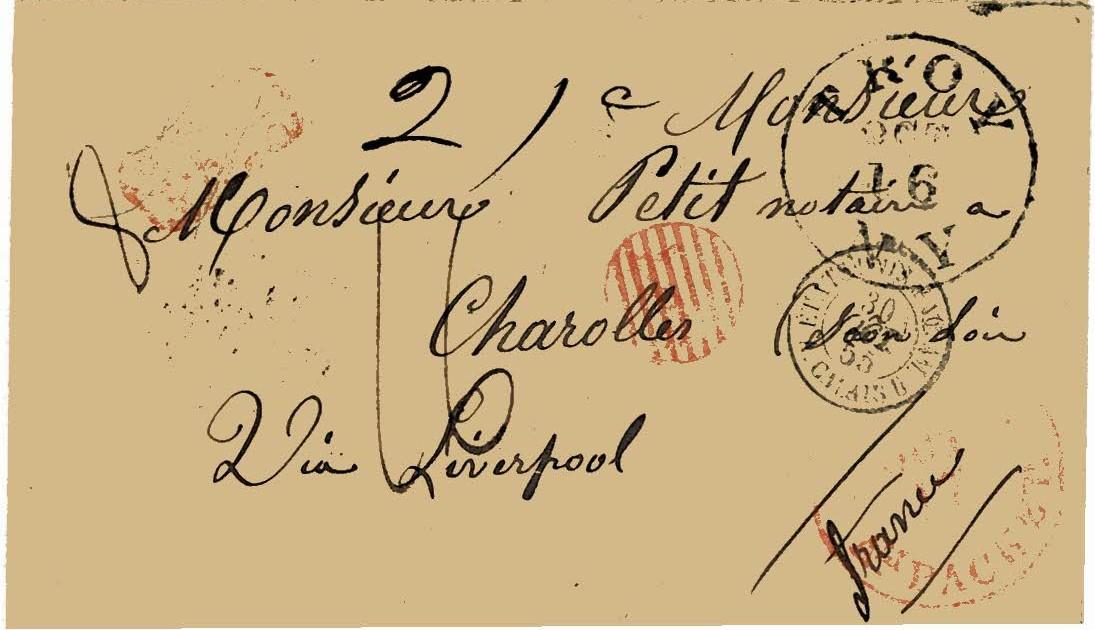 2
a Monsieur
Monsieur Petit notaire a
Charolles (Saon Loir
Via Liverpool
France
TROY
OCT
16
N.Y
ETATS-UNIS
30
OCT
55
CALAIS
PACKET